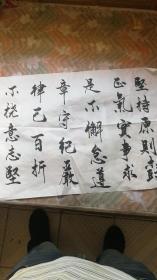 堅持原則彰
正氣實事求
是不懈怠遵
章守紀嚴
律己百折
不撓意志堅